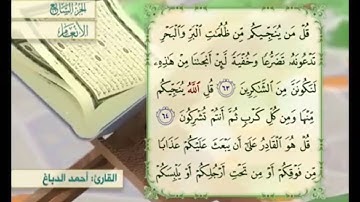 الجزء السابع
الأنعام
قُلْ مَن يُنَجِّيكُم مِّن ظُلُمَٰتِ ٱلْبَرِّ وَٱلْبَحْرِ
تَدْعُونَهُۥ تَضَرُّعًا وَخُفْيَةً لَّئِنْ أَنجَىٰنَا مِنْ هَٰذِهِۦ
لَنَكُونَنَّ مِنَ ٱلشَّٰكِرِينَ ٦٣ قُلِ ٱللَّهُ يُنَجِّيكُم
مِّنْهَا وَمِن كُلِّ كَرْبٍ ثُمَّ أَنتُمْ تُشْرِكُونَ ٦٤
قُلْ هُوَ ٱلْقَادِرُ عَلَىٰٓ أَن يَبْعَثَ عَلَيْكُمْ عَذَابًا
مِّن فَوْقِكُمْ أَوْ مِن تَحْتِ أَرْجُلِكُمْ أَوْ يَلْبِسَكُمْ
القارئ: أحمد الدباغ